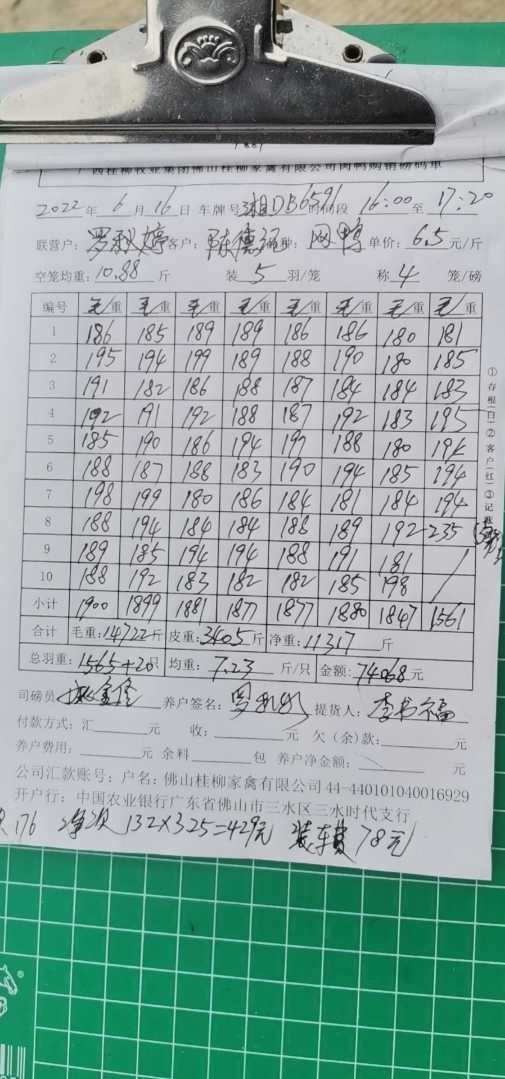 广西桂柳牧业集团佛山桂柳家禽有限公司肉鸭购销磅码单
2022年 6月 16日 车牌号 湘DB6591 时间段 16:00 至 17:20
联营户: 罗 婷 客户: 陈德 种: 肉鸭 单价: 6.5 元/斤
空笼均重: 10.88 斤 装 5 羽/笼 称 4 笼/磅
编号 毛/重 毛/重 毛/重 毛/重 毛/重 毛/重 毛/重 毛/重
1 186 185 189 189 186 186 180 181
2 195 194 199 189 188 190 180 185
3 191 182 186 188 187 184 184 183
4 192 191 192 188 187 192 183 195
5 185 190 186 194 197 188 180 194
6 188 187 188 183 190 194 185 194
7 198 199 180 186 184 181 184 194
8 188 194 184 184 188 189 192 235
9 189 185 194 194 188 191 181 /
10 188 192 183 182 182 185 198
小计 1900 1899 1881 1877 1877 1880 1847 1561
合计 毛重: 14722 斤 皮重: 3405 斤 净重: 11317 斤
总羽重: 1565+20只 均重: 7.23 斤/只 金额: 74068 元
①存根(白)②客户(红)③记账
司磅员 养户签名: 罗 提货人: 李书福
付款方式: 汇 元 收: 元 欠(余)款: 元
养户费用: 元 余料 包 养户净金额: 元
公司汇款账号: 户名: 佛山桂柳家禽有限公司 44-440101040016929
开户行: 中国农业银行广东省佛山市三水区三水时代支行
176 132×3.25=429元 装车费 78元